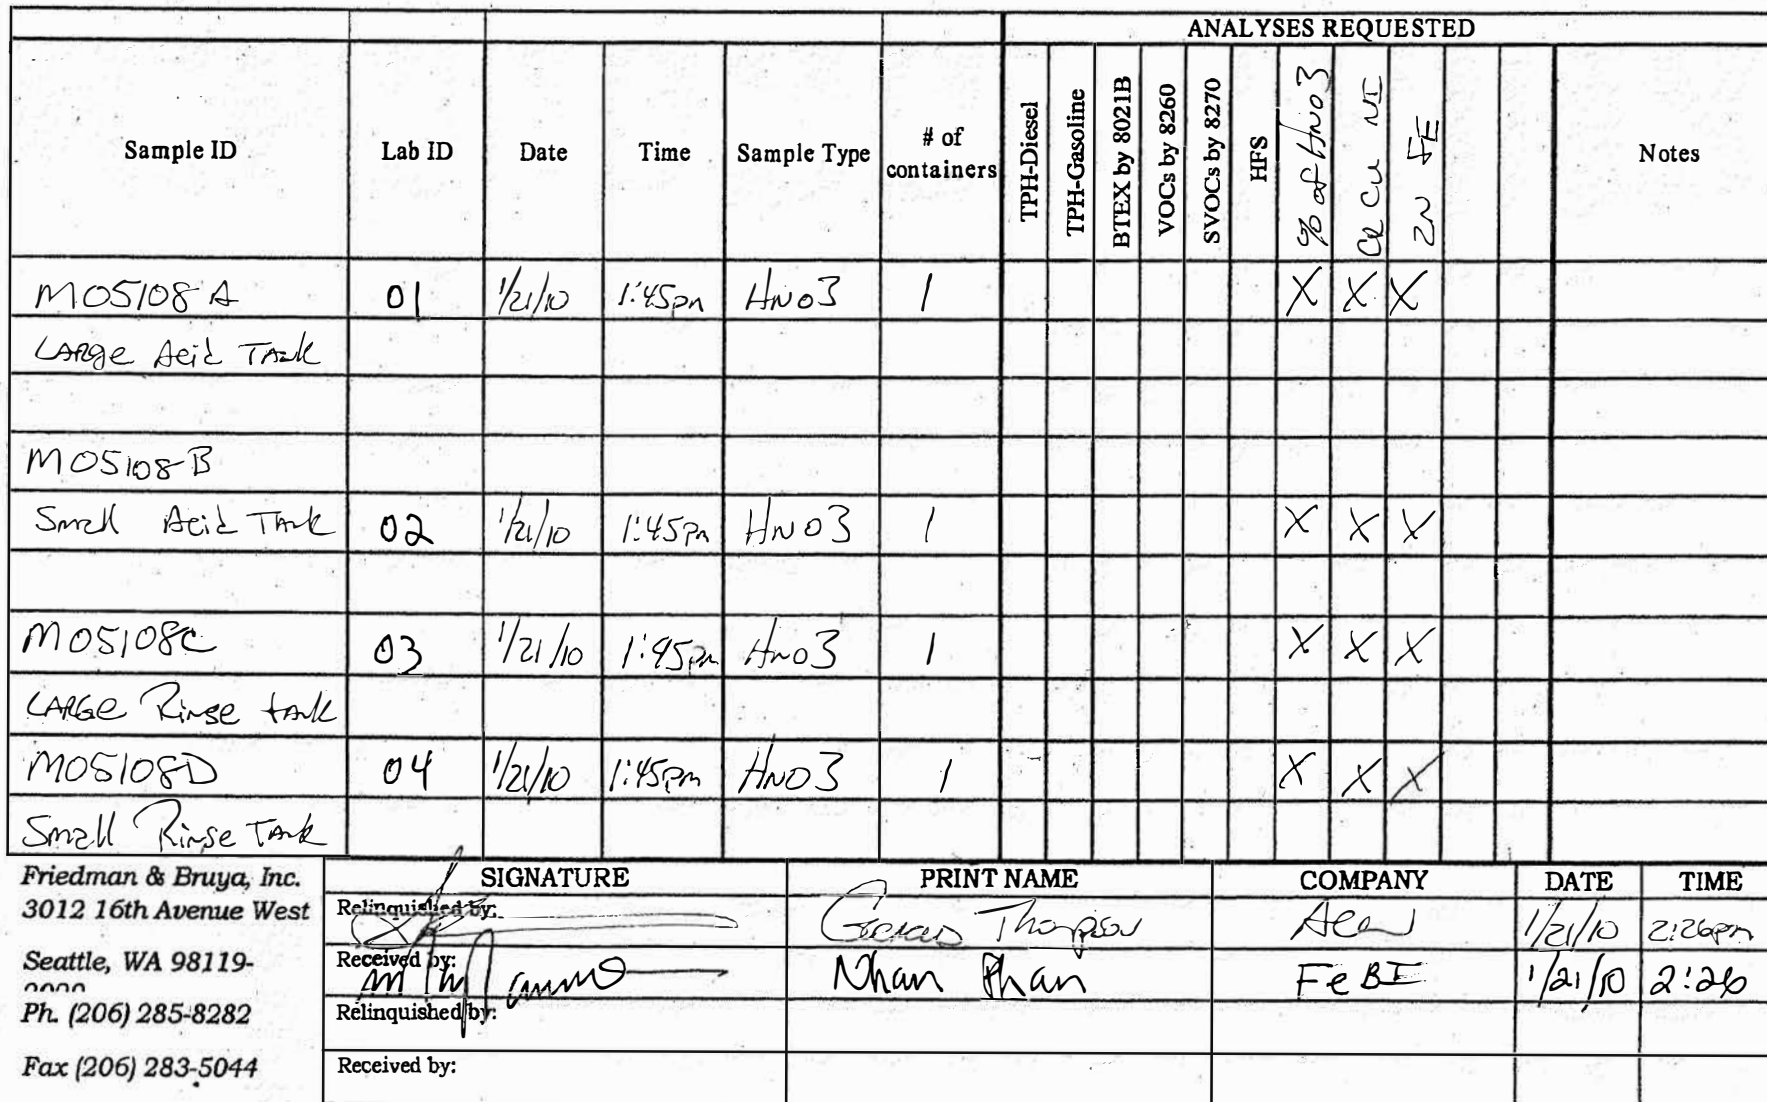 ANALYSES REQUESTED
Sample ID Lab ID Date Time Sample Type # of containers TPH-Diesel TPH-Gasoline BTEX by 8021B VOCs by 8260 SVOCs by 8270 HFS % of HNO3 CR CU NI ZN FE Notes
M05108 A 01 1/21/10 1:45pm HNO3 1 X X X
LARGE Acid Tank
M05108-B
Small Acid Tank 02 1/21/10 1:45pm HNO3 1 X X X
M05108C 03 1/21/10 1:45pm HNO3 1 X X X
LARGE Rinse tank
M05108D 04 1/21/10 1:45pm HNO3 1 X X X
Small Rinse Tank
Friedman & Bruya, Inc.
3012 16th Avenue West
Seattle, WA 98119-
Ph. (206) 285-8282
Fax (206) 283-5044
SIGNATURE PRINT NAME COMPANY DATE TIME
Relinquished by: Thompson 1/21/10 2:26pm
Received by: Nhan Phan FeBI 1/21/10 2:26
Relinquished by:
Received by: